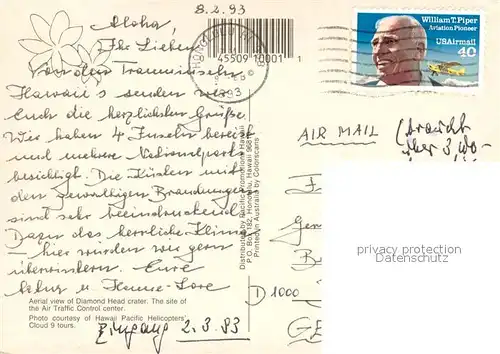 8.2.93
Aloha,
Ihr Lieben
Von den Trauminseln
Hawaii's senden wir
Euch die herzlichsten Grüße.
Wir haben 4 Inseln bereist
und mehrere Nationalparks
besichtigt. Die Küsten mit
den gewaltigen Brandungen
sind sehr beeindruckend.
Dazu das herrliche Klima
- hier würden wir gern
überwintern. Eure
u Hanne-Lore
Aerial view of Diamond Head crater. The site of
the Air Traffic Control center.
Photo courtesy of Hawaii Pacific Helicopters'
Cloud 9 tours.
Eingang 2.3.93
45509 10001 1
HONOLULU
1993
Distributed by Pacific Promotions Hawaii
P.O. Box 182, Honolulu, Hawaii 968
Printed in Australia by Colorscans
William T. Piper
Aviation Pioneer
USAirmail
40
AIR MAIL
(braucht
über 3 Wo-
F
Ger
B
D 1000
GE
privacy protection
DatenSchutz